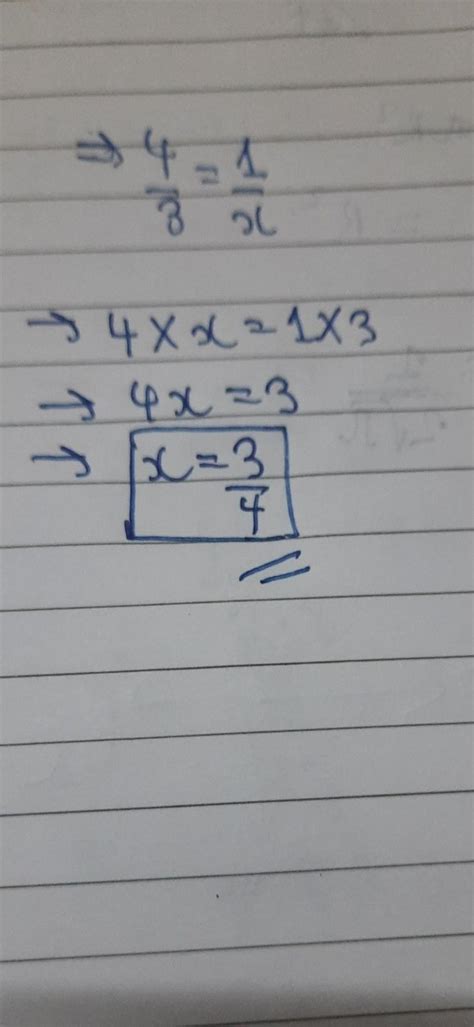 ⇒ 4/3 = 1/x
→ 4 × x = 1 × 3
→ 4x = 3
→ x = 3/4